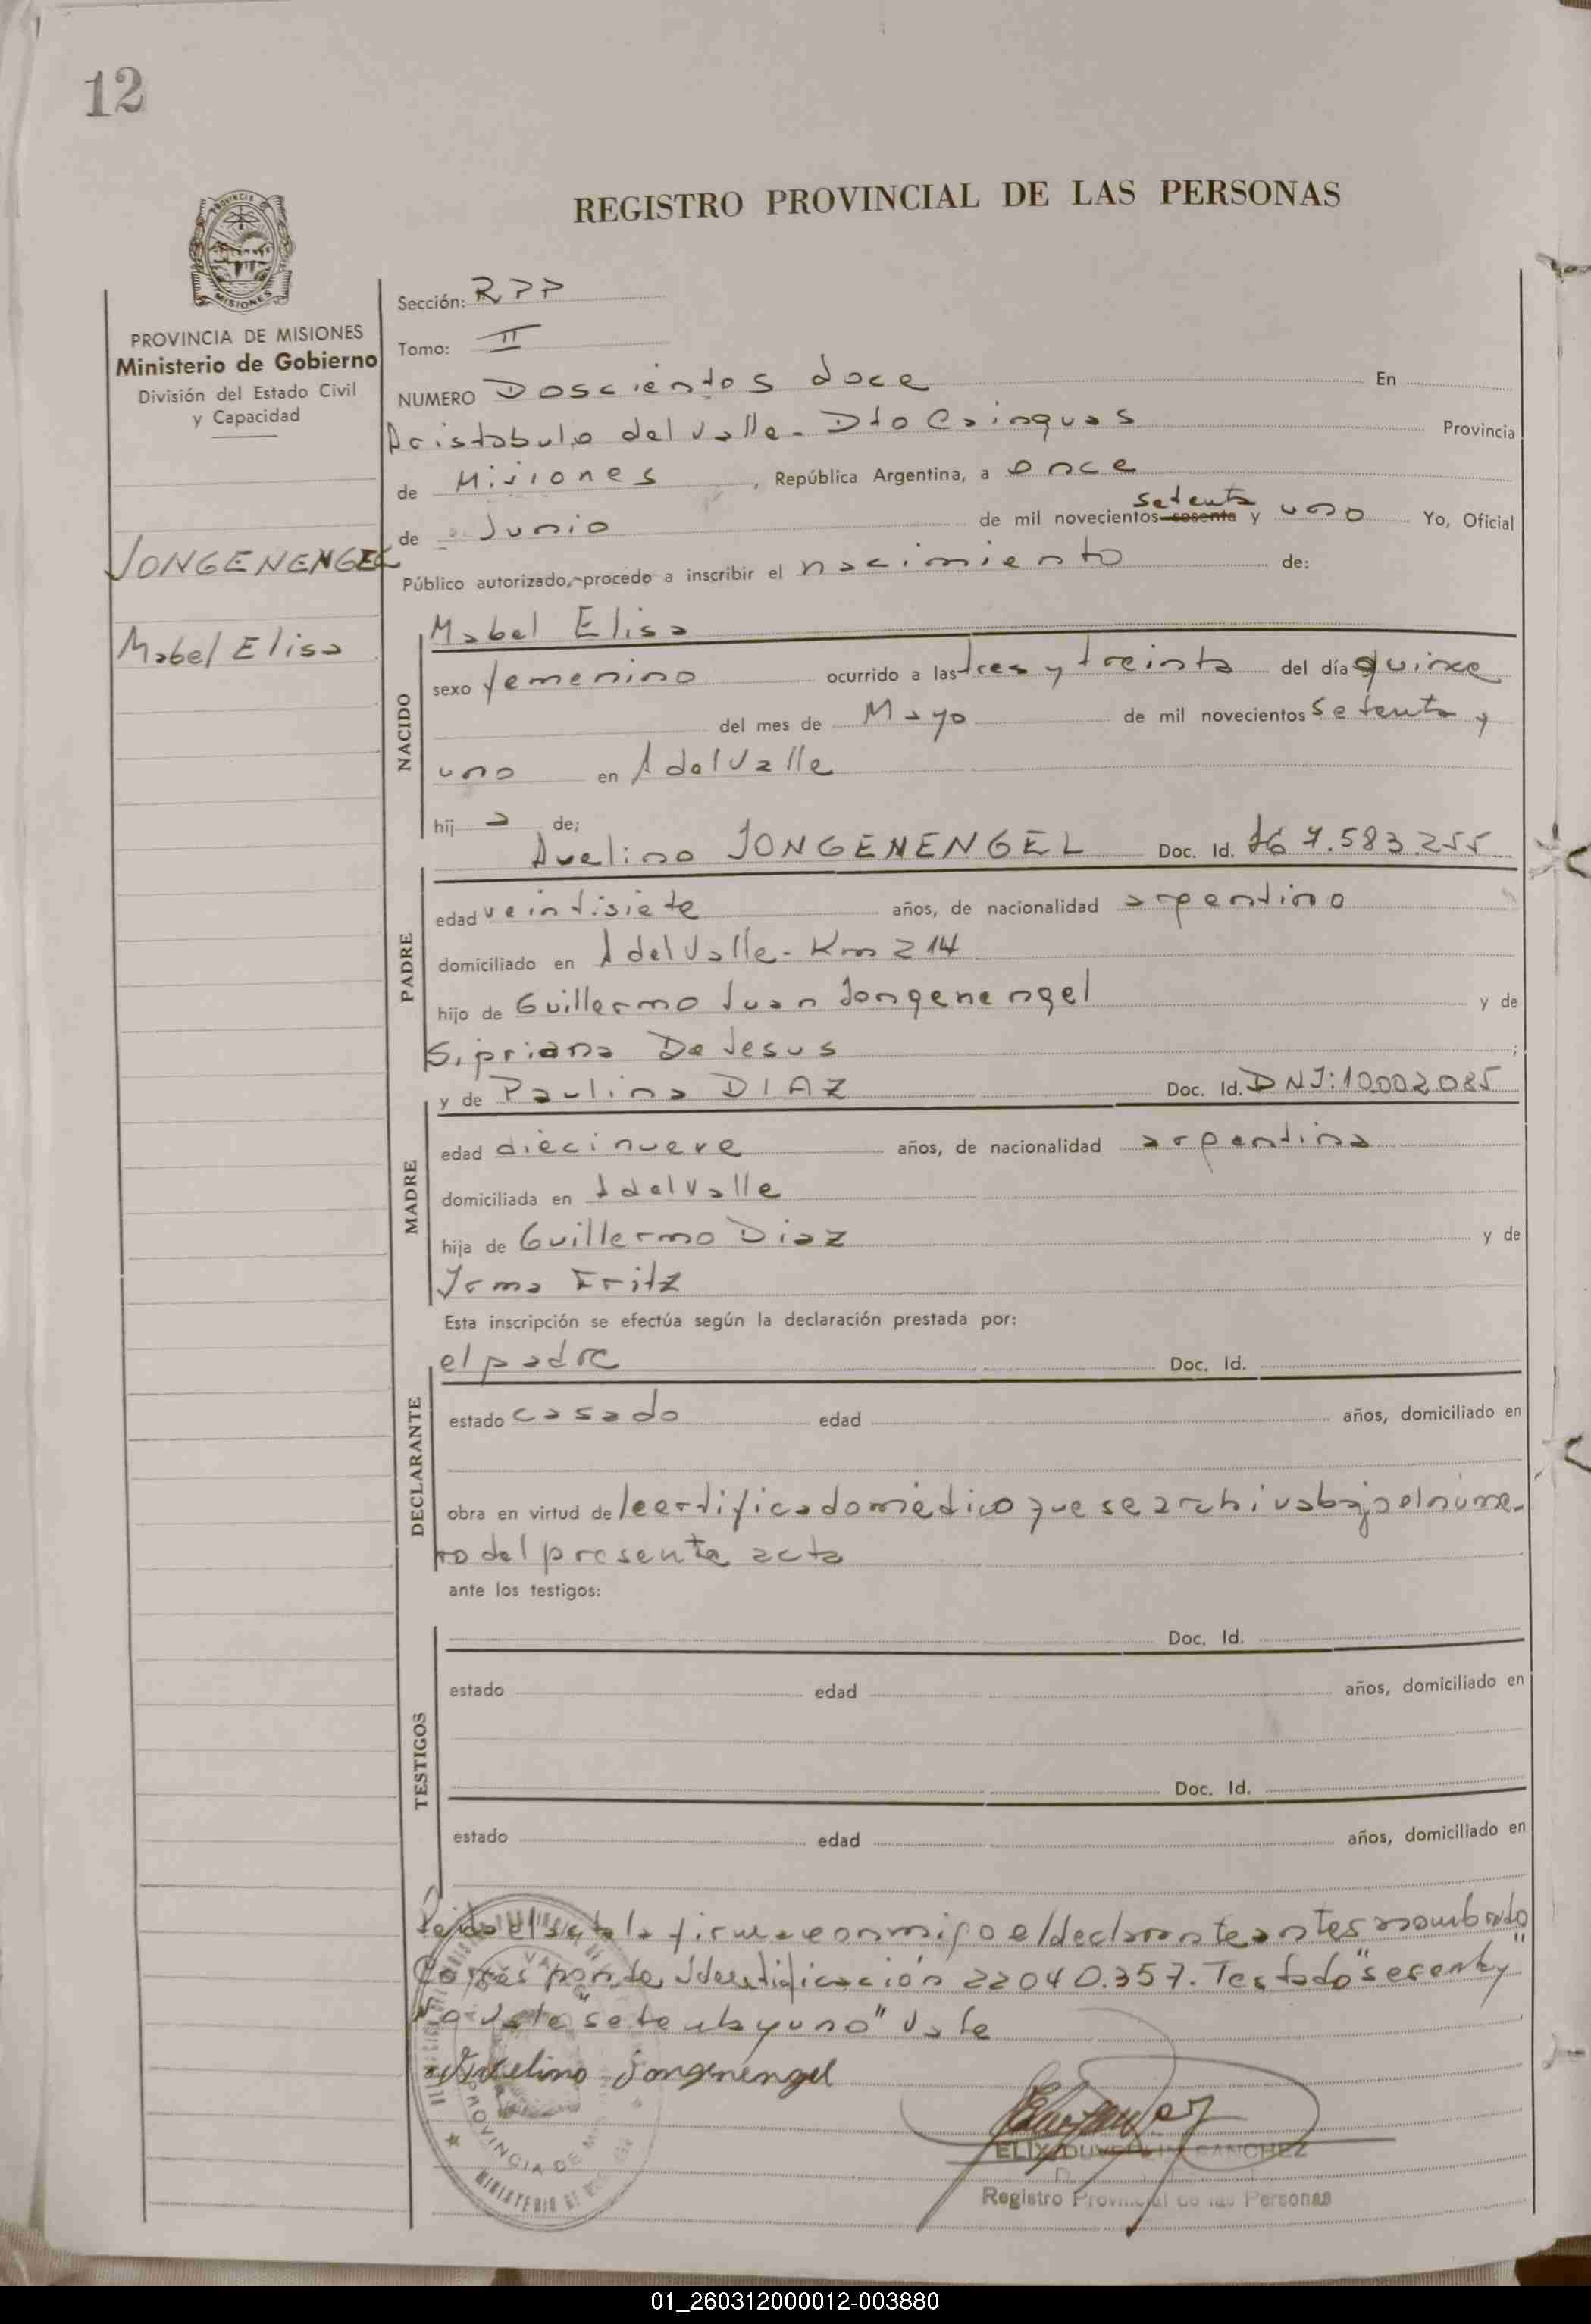 12
REGISTRO PROVINCIAL DE LAS PERSONAS
PROVINCIA DE MISIONES
Ministerio de Gobierno
División del Estado Civil
y Capacidad
JONGENENGEL
Mabel Elisa
Sección: RPP
Tomo: II
NUMERO Doscientos doce En
Aristobulo del Valle - Dto Cainguas Provincia
de Misiones, República Argentina, a once
setenta
de Junio de mil novecientos sesenta y uno Yo, Oficial
Público autorizado, procedo a inscribir el nacimiento de:
NACIDO
Mabel Elisa
sexo femenino ocurrido a las tres y treinta del día quince
del mes de Mayo de mil novecientos setenta y
uno en A del Valle
hij a de;
PADRE
Avelino JONGENENGEL Doc. Id. 7.583.255
edad veintisiete años, de nacionalidad argentino
domiciliado en A del Valle - Km 214
hijo de Guillermo Juan Jongenengel y de
Sipriana De Jesus ;
MADRE
y de Paulina DIAZ Doc. Id. DNI: 10.002.085
edad diecinueve años, de nacionalidad argentina
domiciliada en A del Valle
hija de Guillermo Diaz y de
Irma Fritz
Esta inscripción se efectúa según la declaración prestada por:
DECLARANTE
el padre Doc. Id.
estado casado edad años, domiciliado en
obra en virtud de certificado médico que se archiva bajo el núme-
ro del presente acta
ante los testigos:
TESTIGOS
Doc. Id.
estado edad años, domiciliado en
Doc. Id.
estado edad años, domiciliado en
Leida el acta la firma conmigo el declarante antes nombrado
Corresponde Identificación 22040.357. Testado "sesenta y"
setenta y uno" Vale
Avelino Jongenengel
PROVINCIA DE
MINISTERIO DE
SANCHEZ
Registro Provincial de las Personas
01_260312000012-003880